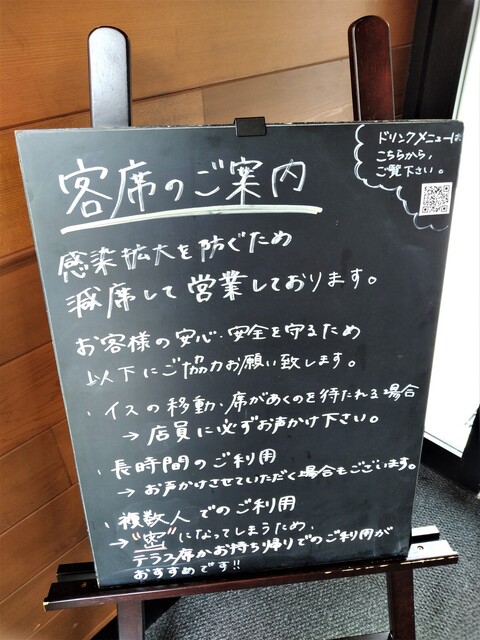 客席のご案内
ドリンクメニューは
こちらから、
ご覧下さい。
感染拡大を防ぐため
減席して営業しております。
お客様の安心・安全を守るため
以下にご協力お願い致します。
・イスの移動・席があくのを待たれる場合
→店員に必ずお声かけ下さい。
・長時間のご利用
→お声かけさせていただく場合もございます。
・複数人でのご利用
→"密"になってしまうため、
テラス席かお持ち帰りでのご利用が
おすすめです!!